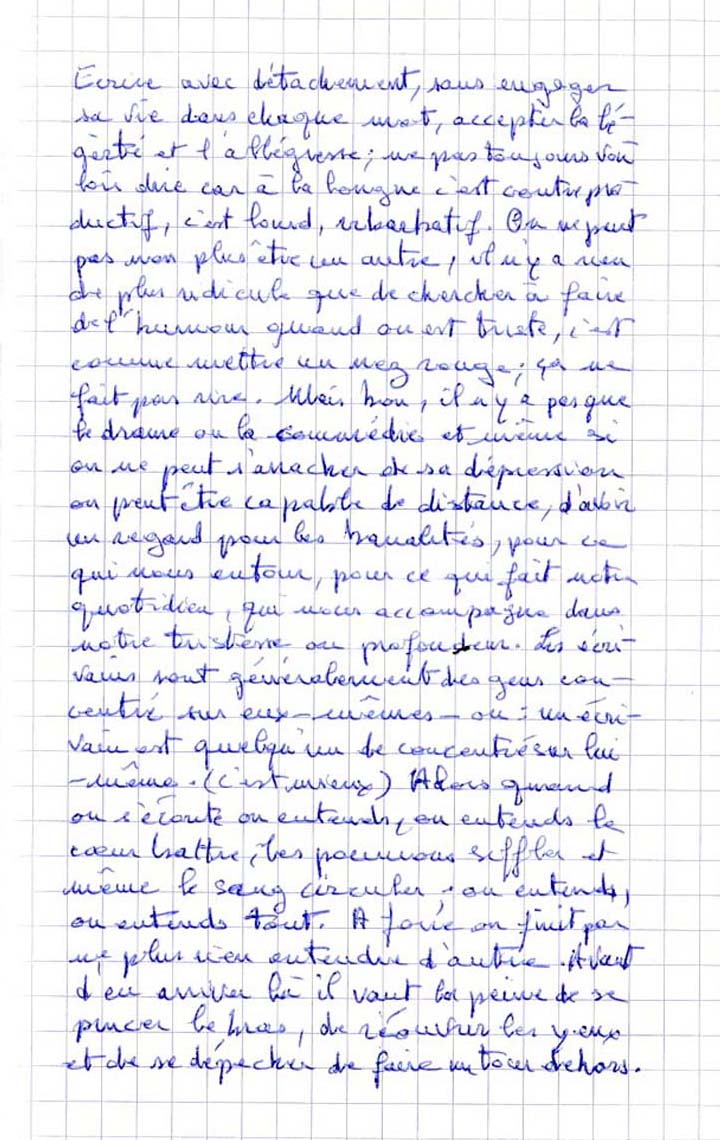 Ecrire avec détachement, sans engager
sa vie dans chaque mot, accepter la lé-
gèrté et l'allégresse; ne pas toujours vou
loir dire car à la longue c'est contrepro
ductif, c'est lourd, rébarbatif. On ne peut
pas non plus être un autre, il n'y a rien
de plus ridicule que de chercher à faire
de l'humour quand on est triste, c'est
comme mettre un nez rouge; ça ne
fait pas rire. Mais bon, il n'y a pas que
le drame ou la commédie et même si
on ne peut s'arracher de sa dépression
on peut être capable de distance, d'avoir
un regard pour les banalités, pour ce
qui nous entour, pour ce qui fait notre
quotidien, qui nous accompagne dans
notre tristesse ou profondeur. Les écri-
vains sont généralement des gens con-
centré sur eux-mêmes - ou : un écri-
vain est quelqu'un de concentré sur lui
-même. (c'est mieux) Alors quand
on s'écoute on entends, on entends le
cœur battre, les poumons siffler et
même le sang circuler, on entends,
on entends tout. A force on finit par
ne plus rien entendre d'autre. Avant
d'en arriver là il vaut la peine de se
pincer le bras, de réouvrir les yeux
et de se dépêcher de faire un tour dehors.